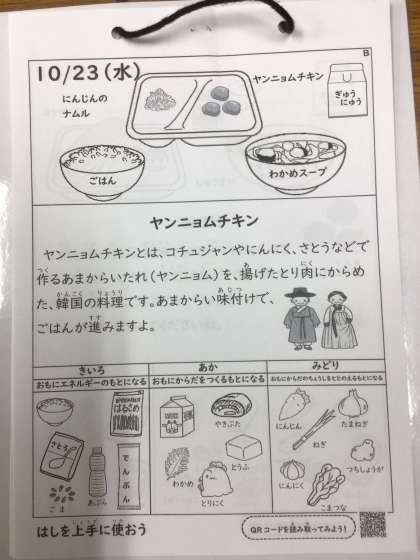 B
10/23(水)
にんじんの
ナムル
ヤンニョムチキン
ぎゅう
にゅう
ごはん
わかめスープ
ヤンニョムチキン
ヤンニョムチキンとは、コチュジャンやにんにく、さとうなどで
作るあまからいたれ(ヤンニョム)を、揚げたとり肉にからめ
た、韓国の料理です。あまからい味付けで、
ごはんが進みますよ。
きいろ
おもにエネルギーのもとになる
はるさめ
さとう
ごま
あぶら
でんぷん
あか
おもにからだをつくるもとになる
やきぶた
わかめ
とうふ
とりにく
みどり
おもにからだのちょうしをととのえるもとになる
にんじん
ねぎ
たまねぎ
にんにく
つちしょうが
こまつな
はしを上手に使おう
QRコードを読み取ってみよう!